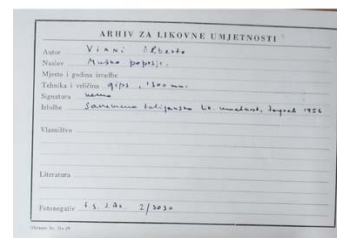 ARHIV ZA LIKOVNE UMJETNOSTI
Autor Viani Alberto
Naslov Muško poprsje.
Mjesto i godina izradbe
Tehnika i veličina gips, 1300 mm.
Signatura nema
Izložbe Savremena talijanska lik. umetnost, Zagreb 1956
Vlasništvo
Literatura
Fotonegativ 2/3030